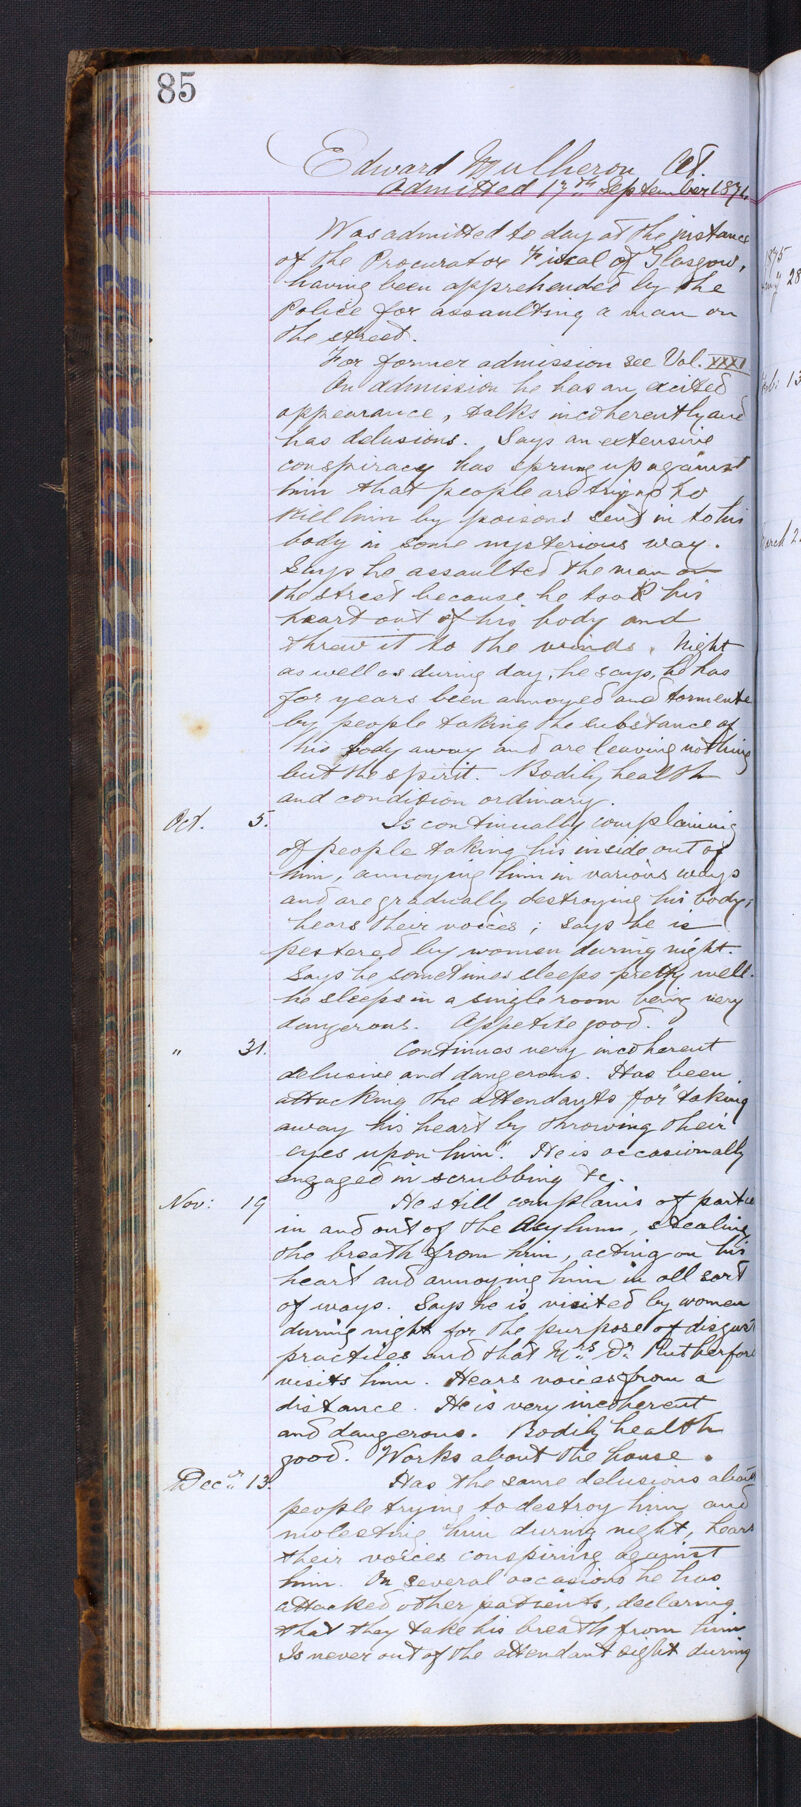 85
Edward Mulheron Æt.
Admitted 17th September 1874
Was admitted to day at the instance
of the Procurator Fiscal of Glasgow,
having been apprehended by the
Police for assaulting a man on
the street.
For former admission see Vol. XXXI
On admission he has an excited
appearance, talks incoherently and
has delusions. Says an extensive
conspiracy has sprung up against
him that people are trying to
kill him by poisons sent in to his
body in some mysterious way.
Says he assaulted the man on
the street because he took his
heart out of his body and
threw it to the winds. Night
as well as during day, he says, he has
for years been annoyed and tormente
by people taking the substance of
his body away and are leaving nothing
but the spirit. Bodily health
and condition ordinary.
Oct. 5. Is continually complaining
of people taking his inside out of
him, annoying him in various ways
and are gradually destroying his body;
hears their voices; says he is
pestered by women during night.
Says he sometimes sleeps pretty well.
he sleeps in a single room being very
dangerous. Appetite good.
" 31. Continues very incoherent
delusive and dangerous. Has been
attacking the attendants for "taking
away his heart by throwing their
eyes upon him". He is occasionally
engaged in scrubbing &c.
Nov: 19 He still complains of partie
in and out of the Asylum, stealing
the breath from him, acting on his
heart and annoying him in all sort
of ways. Says he is visited by women
during night for the purpose of disgust
practices and that Mrs Dr Rutherford
visits him. Hears voices from a
distance. He is very incoherent
and dangerous. Bodily health
good. Works about the house.
Decr 13. Has the same delusions about
people trying to destroy him and
molesting him during night, hears
their voices conspiring against
him. On several occasions he has
attacked other patients, declaring
that they take his breath from him
Is never out of the attendant sight during
1875
28
13